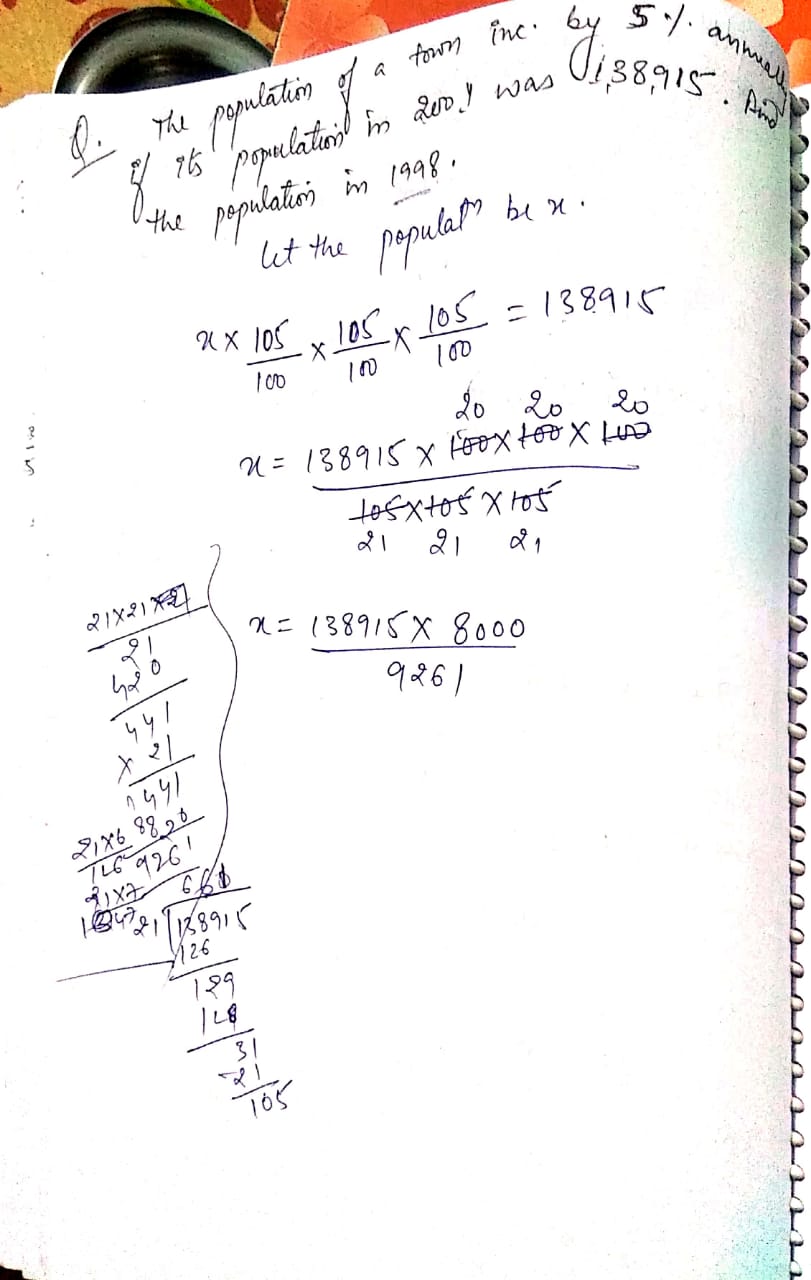 Q. The population of a town inc. by 5%. annually
if its population in 2001 was 1,38,915. Find
the population in 1998.
let the populatn be x.
x × 105/100 × 105/100 × 105/100 = 138915
20 20 20
x = 138915 × 100 × 100 × 100
105 × 105 × 105
21 21 21
x = 138915 × 8000
9261
21×21×21
21
420
441
× 21
441
8820
9261
21×6
126
21×7
147
21 138915
126
129
126
31
21
105